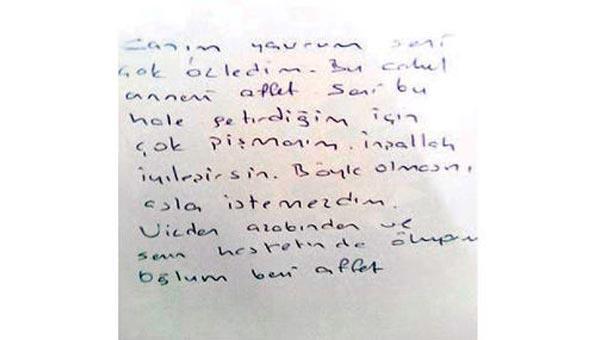 Canım yavrum seni
çok özledim. Bu cahil
anneni affet seni bu
hale getirdiğim için
çok pişmanım. inşallah
iyileşirsin. Böyle olmasını
asla istemezdim.
Vicdan azabından ve
senin hasretinde ölüyorum
oğlum beni affet